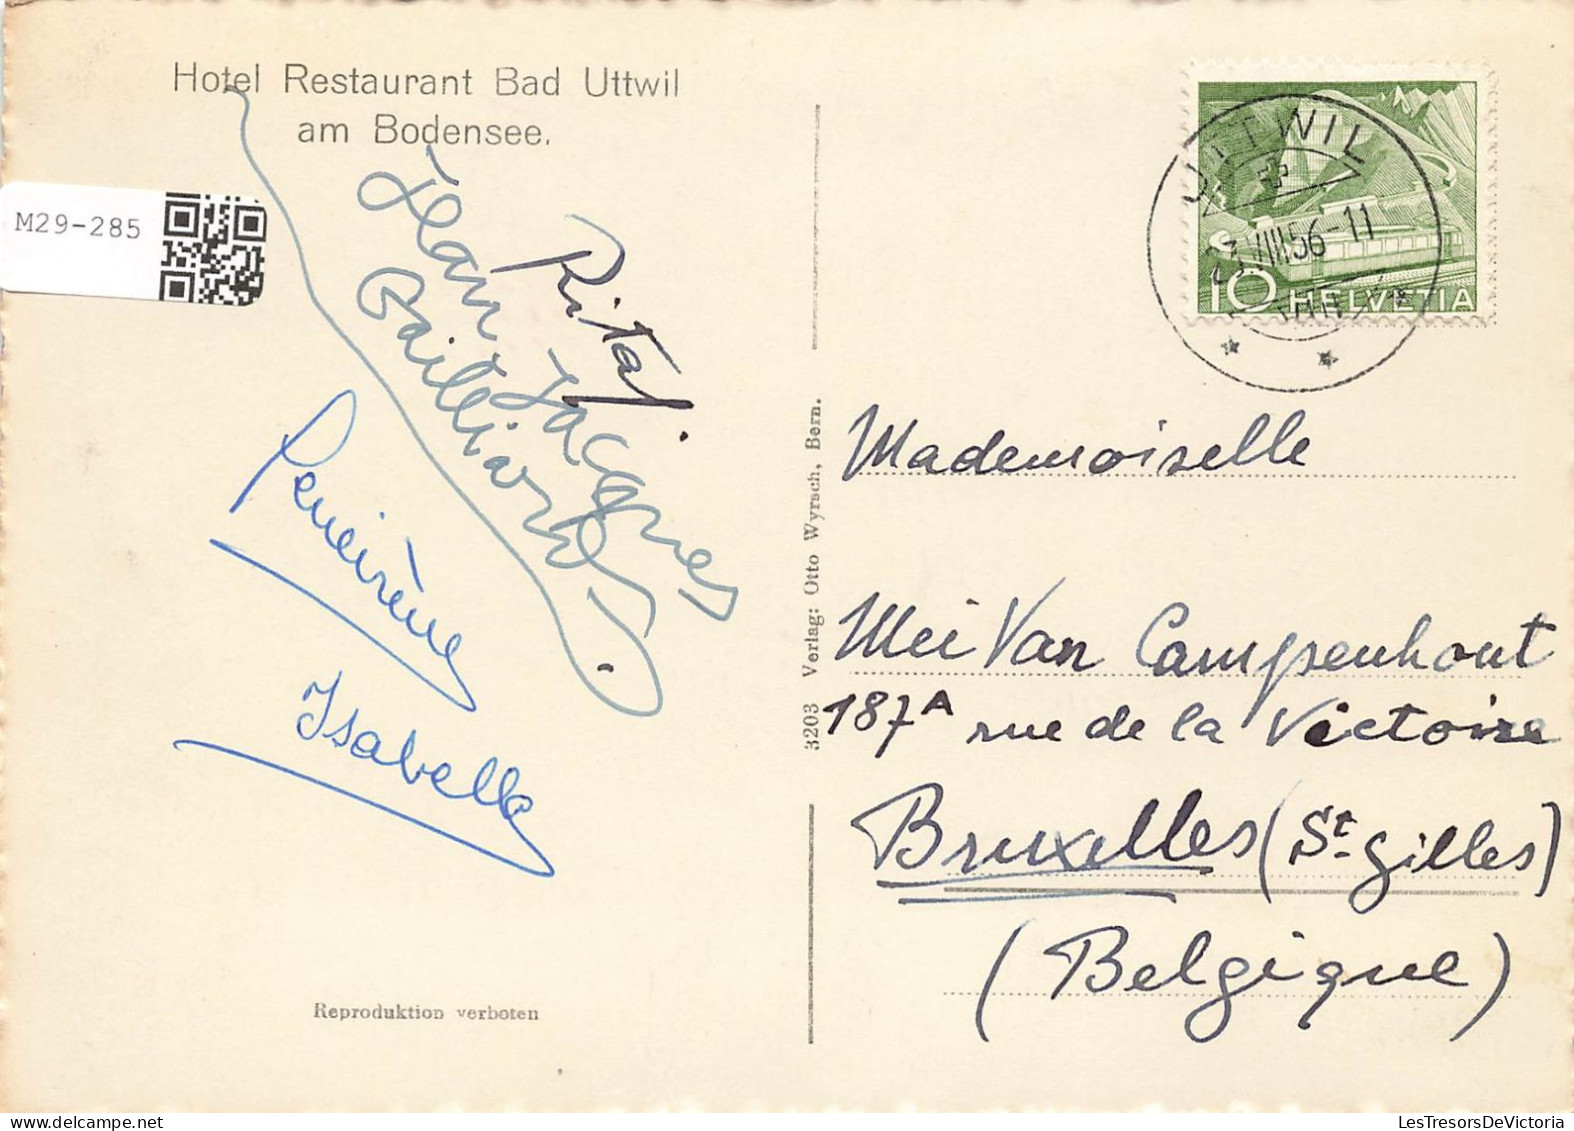 Hotel Restaurant Bad Uttwil
am Bodensee.
M29-285
Rita
Jean Jacques
Isabelle
Reproduktion verboten
3203 Verlag: Otto Wyrsch, Bern.
UTTWIL
VIII.56-11
10 HELVETIA
Mademoiselle
Van Campenhout
187A rue de la Victoire
Bruxelles (St-Gilles)
(Belgique)
LesTresorsDeVictoria